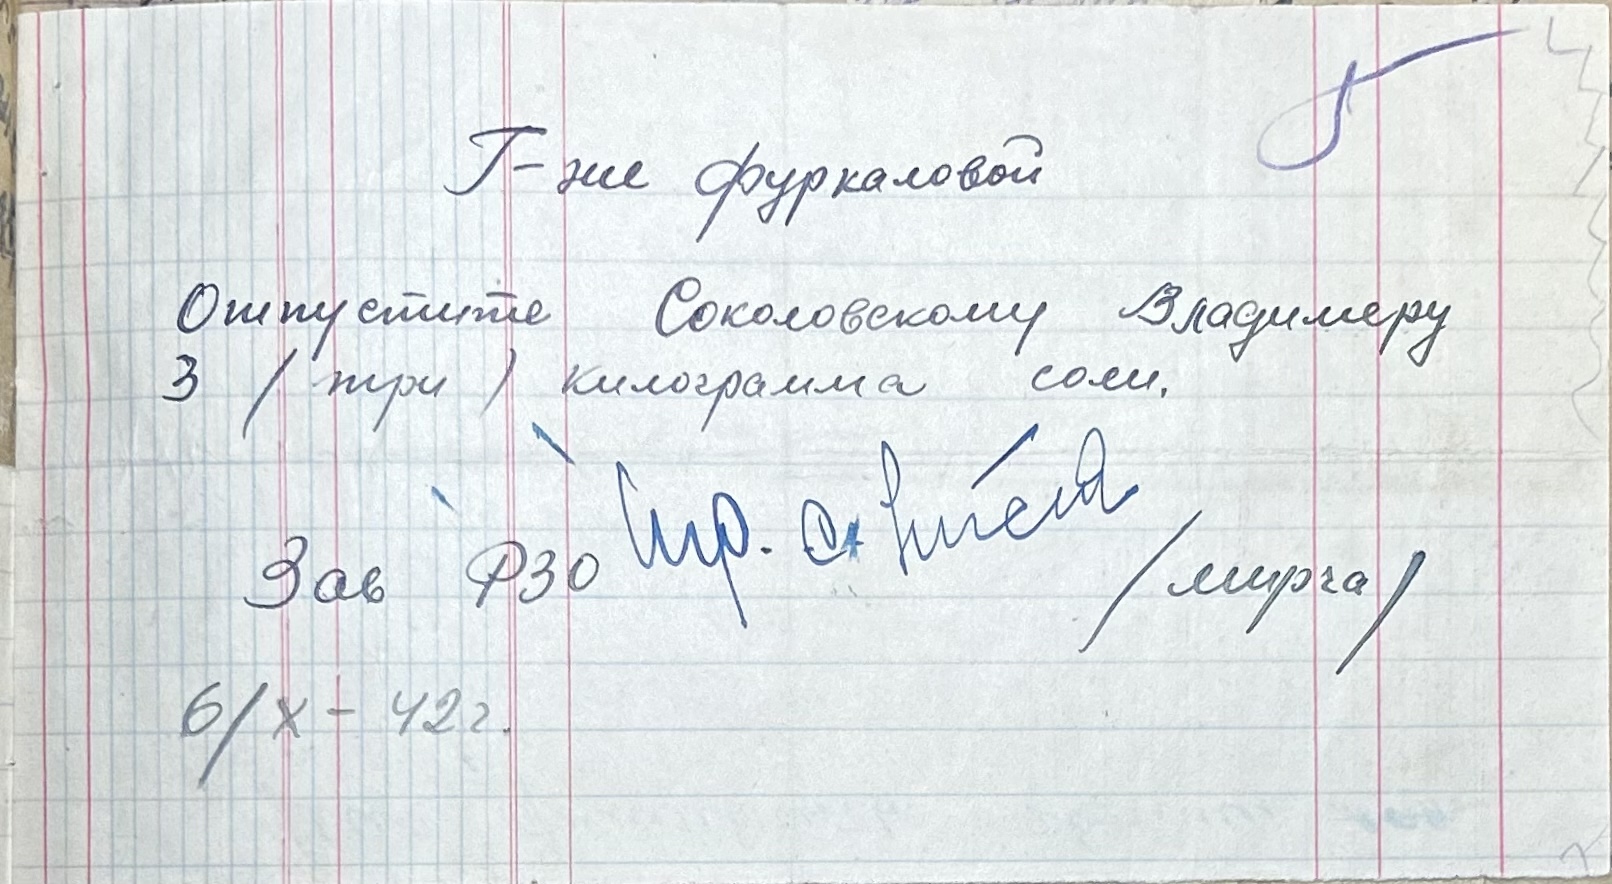 Г-же Фуркаловой
Отпустите Соколовскому Владимеру
3 /три/ килограмма соли.
Зав РЗО /мирча/
6/X - 42 г.